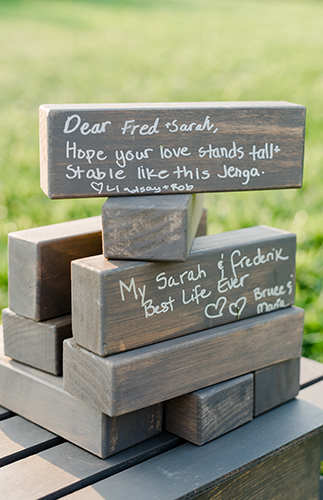 Dear Fred + Sarah,
Hope your love stands tall +
Stable like this Jenga.
♡ Lindsay + Rob
My Sarah & Frederik
Best Life Ever ♡♡
Bruce &
Marie